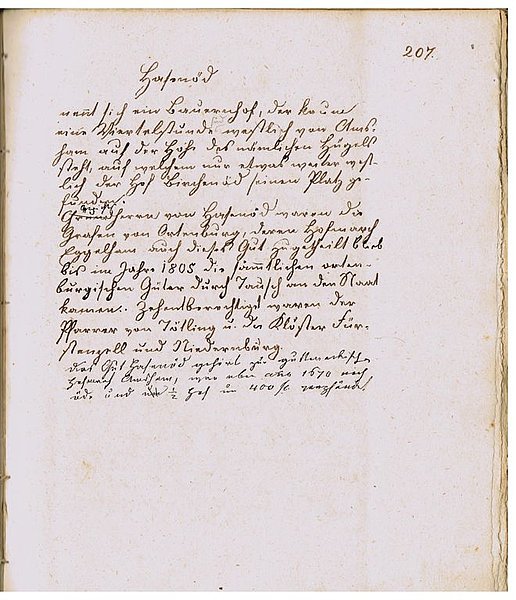 207.
Hasenöd
nennt sich ein Bauernhof, der kaum
eine Viertelstunde westlich von Ams-
ham auf der Höhe des nämlichen Hügels
steht, auf welchem nur etwas weiter west-
lich der Hof Birchenöd seinen Platz ge-
funden.
Grundherren von Hasenöd waren die
Grafen von Ortenburg, deren Hofmarch
Egglham auch dieses Gut zugetheilt blieb
bis im Jahre 1805 die sämmtlichen orten-
burgischen Güter durch Tausch an den Staat
kamen. Zehentberechtigt waren der
Pfarrer von Tötling u. die Klöster Für-
stenzell und Niedernburg.
Das Gut Hasenöd gehört zur
Hofmarch Amsham, war aber 1670 noch
öde und ½ Hof um 400 fl